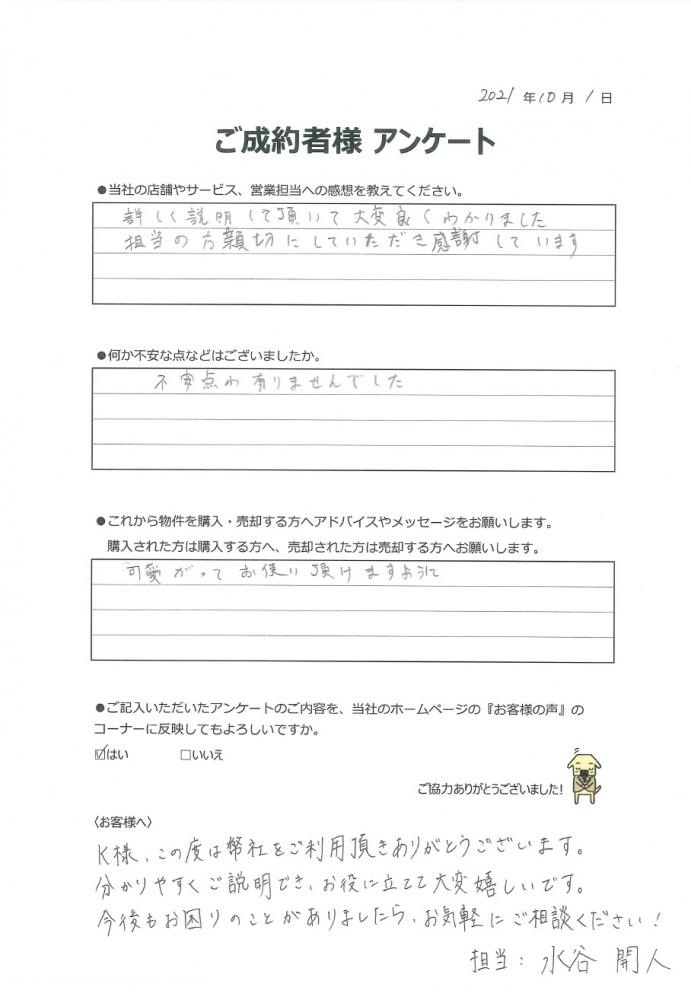 2021年10月1日
ご成約者様 アンケート
●当社の店舗やサービス、営業担当への感想を教えてください。
詳しく説明して頂いて大変良くわかりました
担当の方親切にしていただき感謝しています
●何か不安な点などはございましたか。
不安点わ有りませんでした
●これから物件を購入・売却する方へアドバイスやメッセージをお願いします。
購入された方は購入する方へ、売却された方は売却する方へお願いします。
可愛がってお使い頂けますように
●ご記入いただいたアンケートのご内容を、当社のホームページの『お客様の声』の
コーナーに反映してもよろしいですか。
☑はい □いいえ
ご協力ありがとうございました!
〈お客様へ〉
K様、この度は弊社をご利用頂きありがとうございます。
分かりやすくご説明でき、お役に立てて大変嬉しいです。
今後もお困りのことがありましたら、お気軽にご相談ください!
担当:水谷 開人